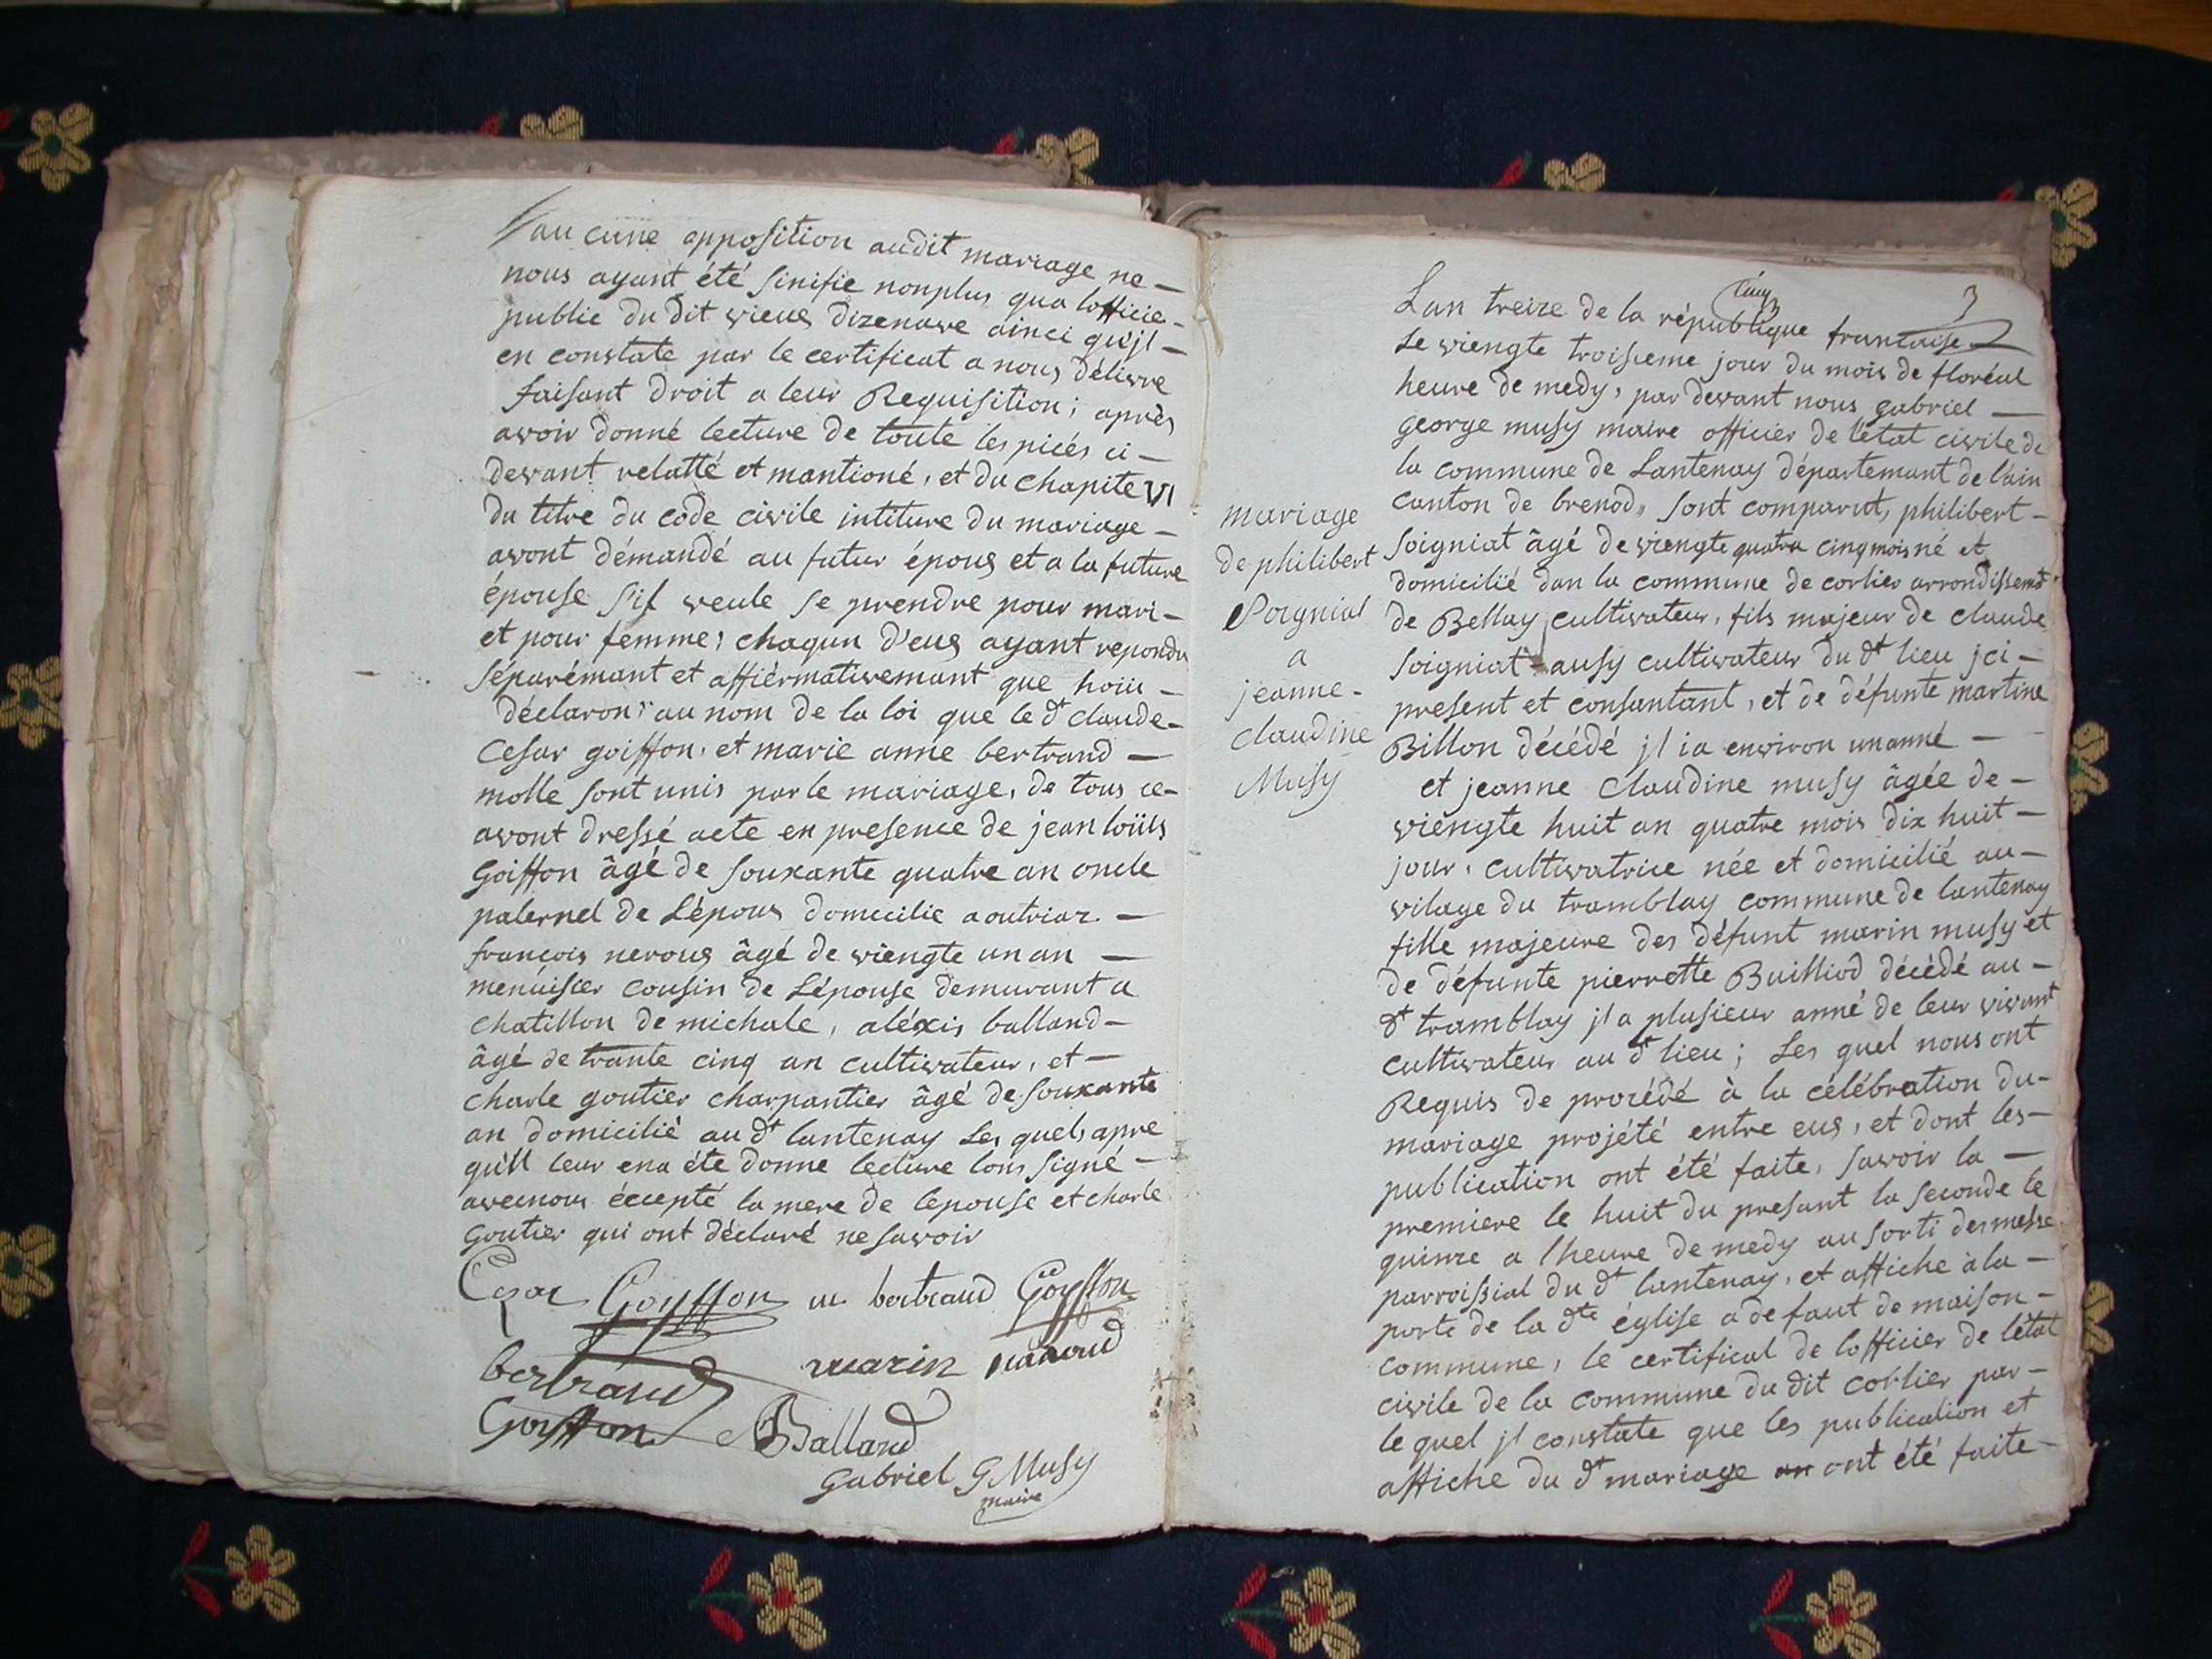 aucune opposition audit mariage ne
nous ayant été sinifie nonplus qua lofficie
public du dit vieus dizenave ainci qu'jl
en constate par le certificat a nous délivre
faisant droit a leur Requisition; après
avoir donné lecture de toute les picés ci
devant relatté et mantioné, et du chapite VI
du titre du code civile intiture du mariage
avont démandé au futur épous et a la future
épouse s'il veule se prendre pour mari
et pour femme, chaqun d'eus ayant repondu
séparémant et affiérmativemant que houi
déclarons au nom de la loi que le dt claude
Cesar goiffon, et marie anne bertrand
molle sont unis par le mariage, de tous ce
avont dressé acte en presence de jean loüis
Goiffon âgé de souxante quatre an oncle
paternel de Lépous domecilie a outriaz
françois nerous âgé de viengte un an
menuisier cousin de Lépouse demurant a
chatillon de michale, aléxis balland
âgé de trante cinq an cultivateur, et
charle goutier charpantier âgé de souxante
an domicilié au dt lantenay Les quels apre
qu'il leur ena éte donne lecture lons signé
avecnous écepté la mere de lepouse et charle
goutier qui ont déclaré ne savoir
Cesar Goyffon m bertrand Goyffon
bertrand marin
Goyffon Balland
Gabriel G Musy
maire
Cinq
3
Lan treize de la république francaise
Le viengte troisieme jour du mois de floréal
heure de medy, par devant nous gabriel
george musy maire officier de l'état civile de
la commune de Lantenay départemant de l'ain
canton de brenod, sont comparut, philibert
soigniat âgé de viengte quatre cinq mois né et
domicilié dan la commune de corlier arrondissemt
de Bellay cultivateur, fils majeur de claude
soigniat ausy cultivateur du dt lieu jci
present et consantant, et de défunte martine
Billon décédé jl ia environ unanné
et jeanne claudine musy âgée de
viengte huit an quatre mois dix huit
jour, cultivatrice née et domicilié au
vilage du tramblay commune de lantenay
fille majeure des défunt marin musy et
de défunte pierrette Builliod décédé au
dt tramblay jl a plusieur anné de leur vivant
cultivateur au dt lieu; Les quel nous ont
Requis de procédé à la célébration du
mariage projété entre eus, et dont les
publication ont été faite, savoir la
premiere le huit du presant la seconde le
quinze a lheure de medy au sorti desmesse
parroissial du dt lantenay, et affiche à la
porte de la dte église a defaut de maison
commune, le certifical de lofficier de létat
civile de la commune du dit corlier par
le quel jl constate que les publication et
affiche du dt mariage ont été faite
mariage
de philibert
Soigniat
a
jeanne
claudine
Musy